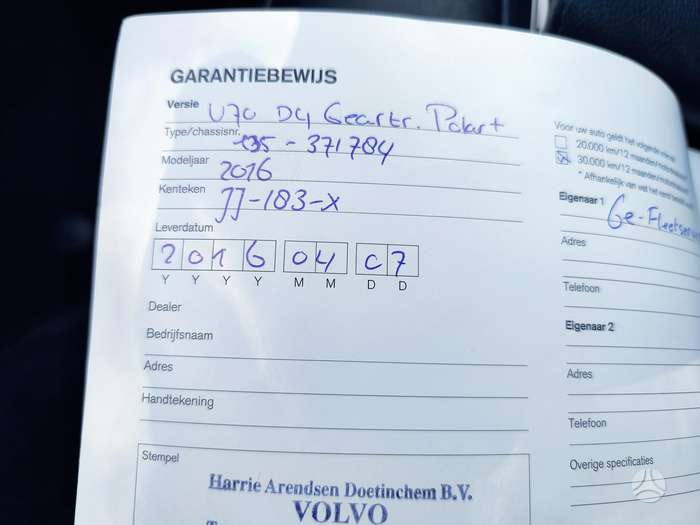 GARANTIEBEWIJS
Versie V70 D4 Geartr. Polar+
Type/chassisnr. 135 - 371784
Modeljaar 2016
Kenteken JJ-183-X
Leverdatum
2016 04 07
Y Y Y Y M M D D
Dealer
Bedrijfsnaam
Adres
Handtekening
Stempel
Harrie Arendsen Doetinchem B.V.
VOLVO
Voor uw auto geldt het volgende
20.000 km/12 maanden
30.000 km/12 maanden
* Afhankelijk van wet het eerst
Eigenaar 1 Ge-Fleetser
Adres
Telefoon
Eigenaar 2
Adres
Telefoon
Overige specificaties